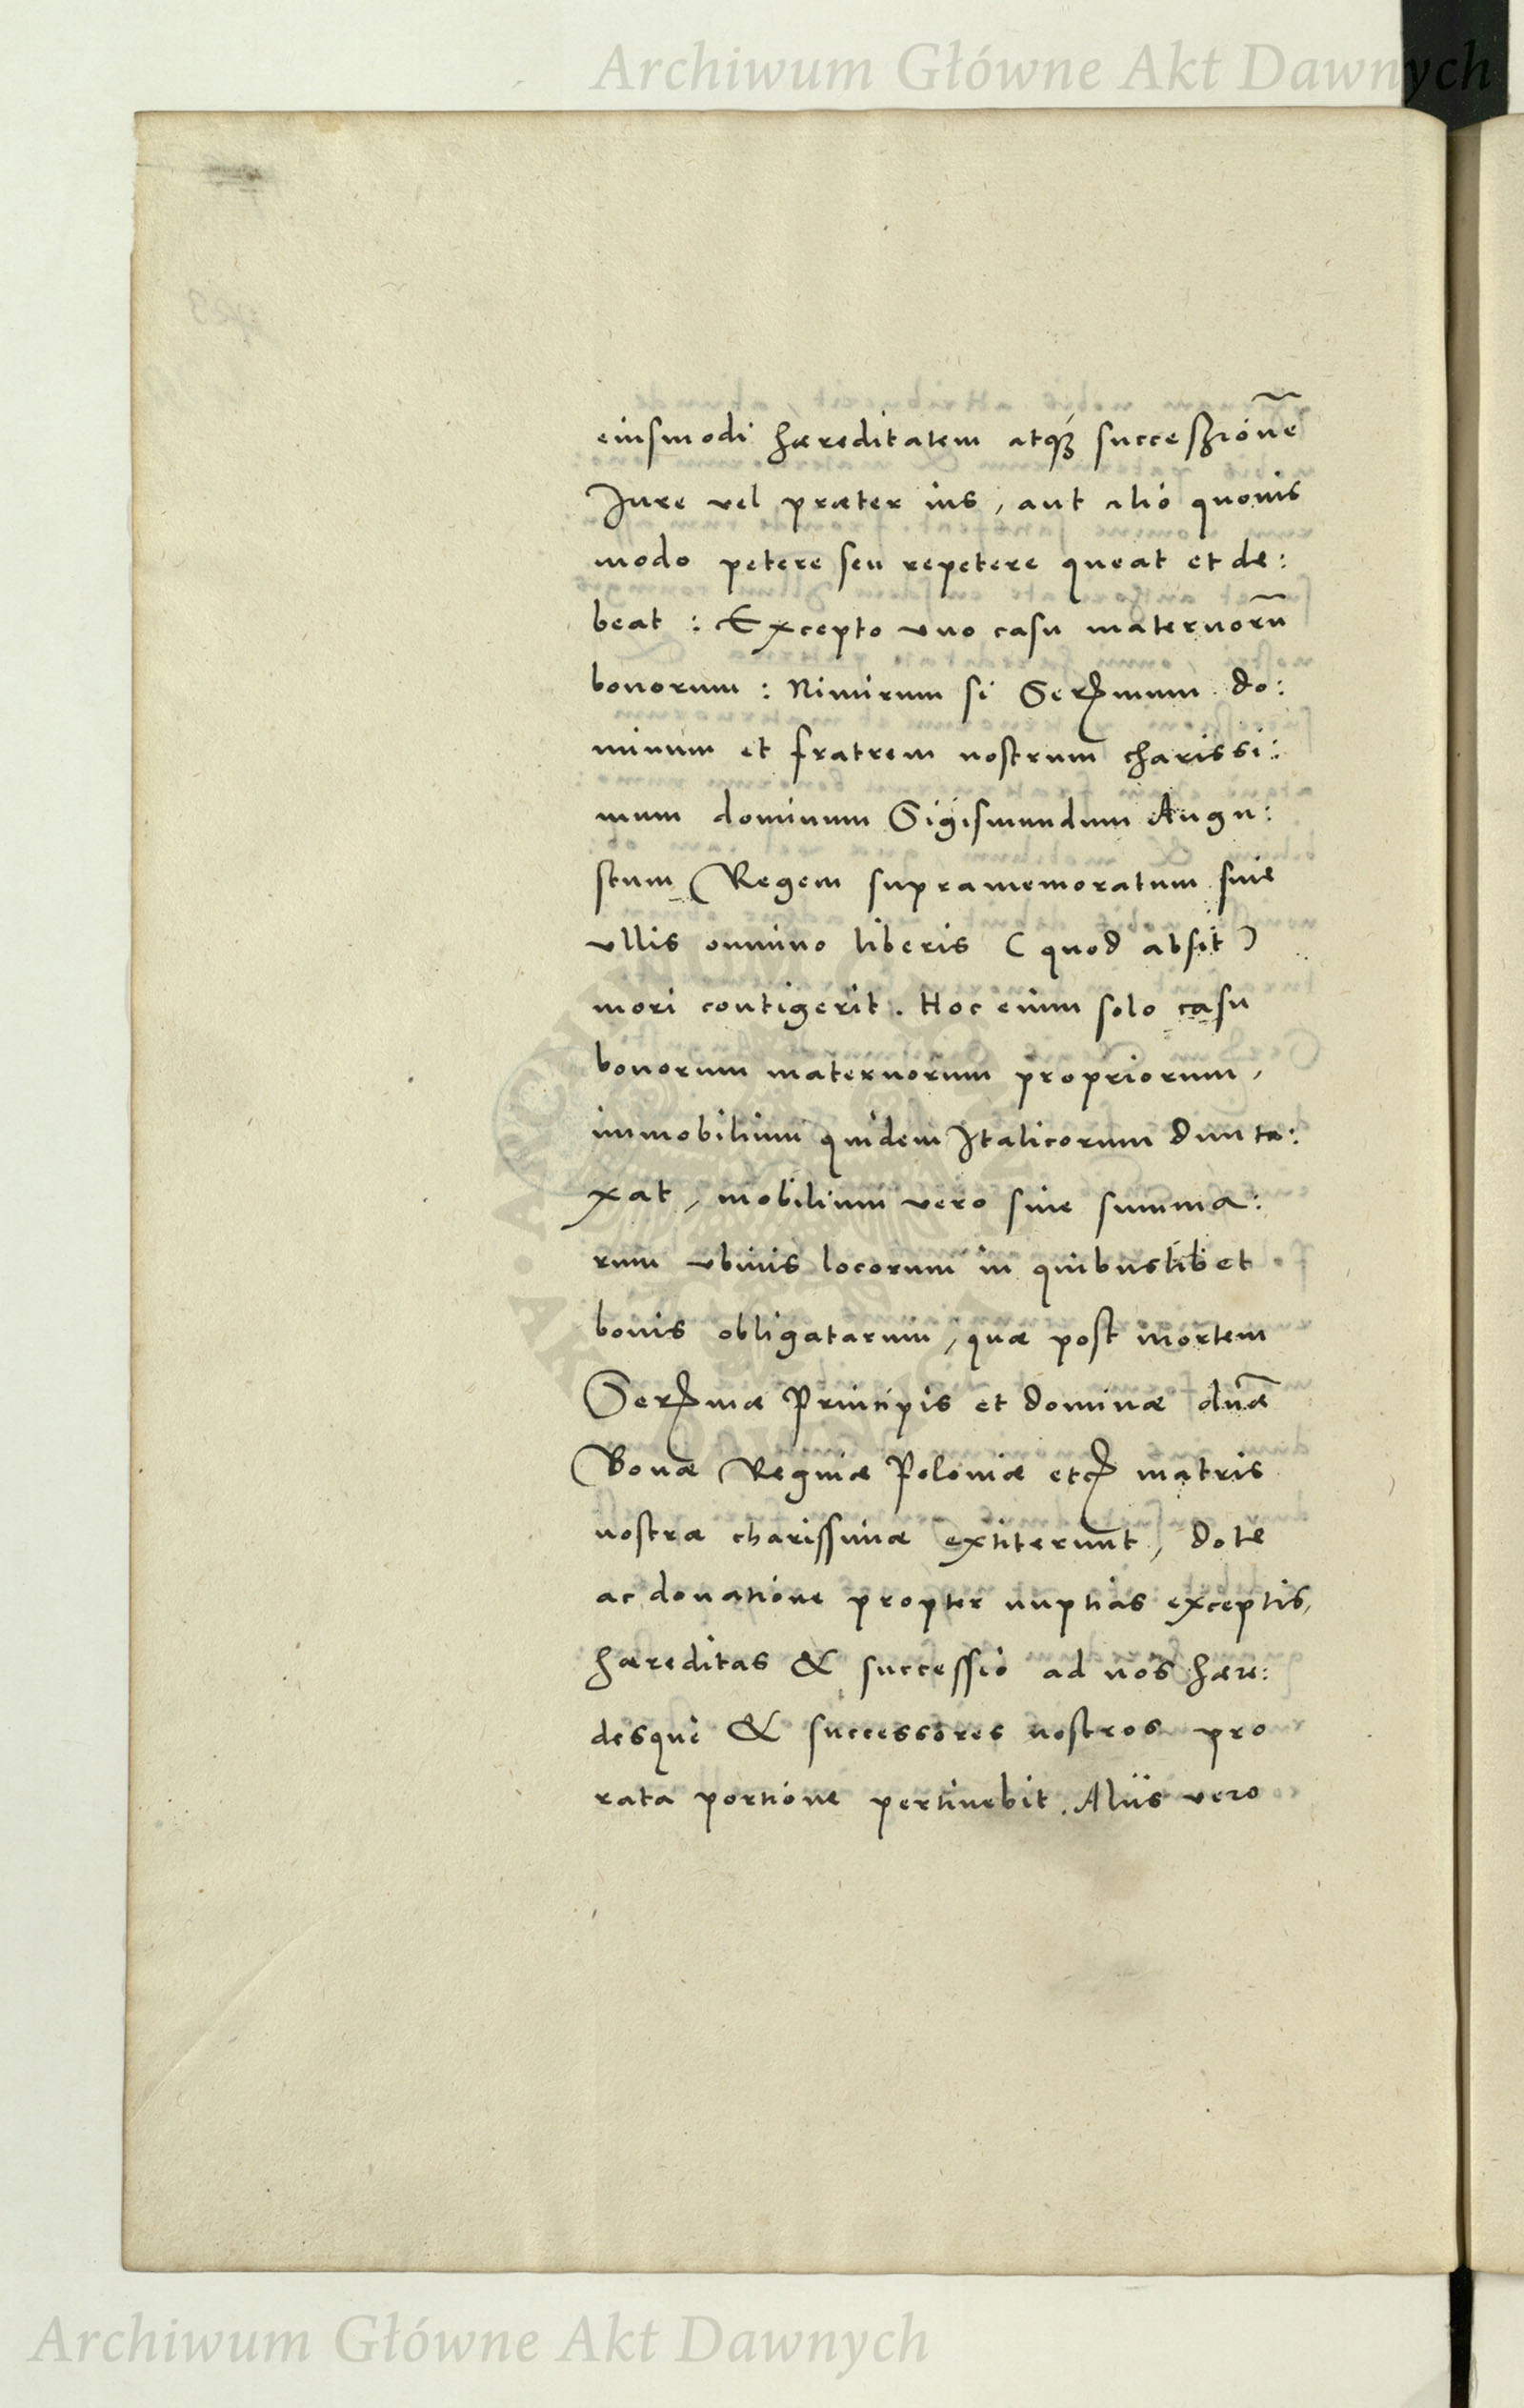 Archiwum Główne Akt Dawnych
eiusmodi hæreditatem atq́ȝ succeßiónẽ
Iure vel præter ius, aut alió quouis
modo petere seu repetere queat et de:
beat : Excepto vno casu maternorũ
bonorum : Nimirum si Serᵐmum do:
minum et fratrem nostrum charissi:
mum dominum Sigismundum Augu:
stum Regem supramemoratum sine
vllis omnino liberis ( quod absit )
mori contigerit. Hoc enim solo casu
bonorum maternorum propriorum,
immobilium quidem Italicorum dunta:
xat, mobilium vero siue summa:
rum vbiuis locorum in quibuslibet
bonis obligatarum, quæ post mortem
Serᵐmæ Principis et dominæ dnæ̃
Bonæ Reginæ Poloniæ etc matris
nostræ charissimæ extiterunt, dote
ac donatione propter nuptias exceptis,
hæreditas & successio ad nos hære:
desque & successores nostros pro
rata portione pertinebit. Aliis vero
Archiwum Główne Akt Dawnych